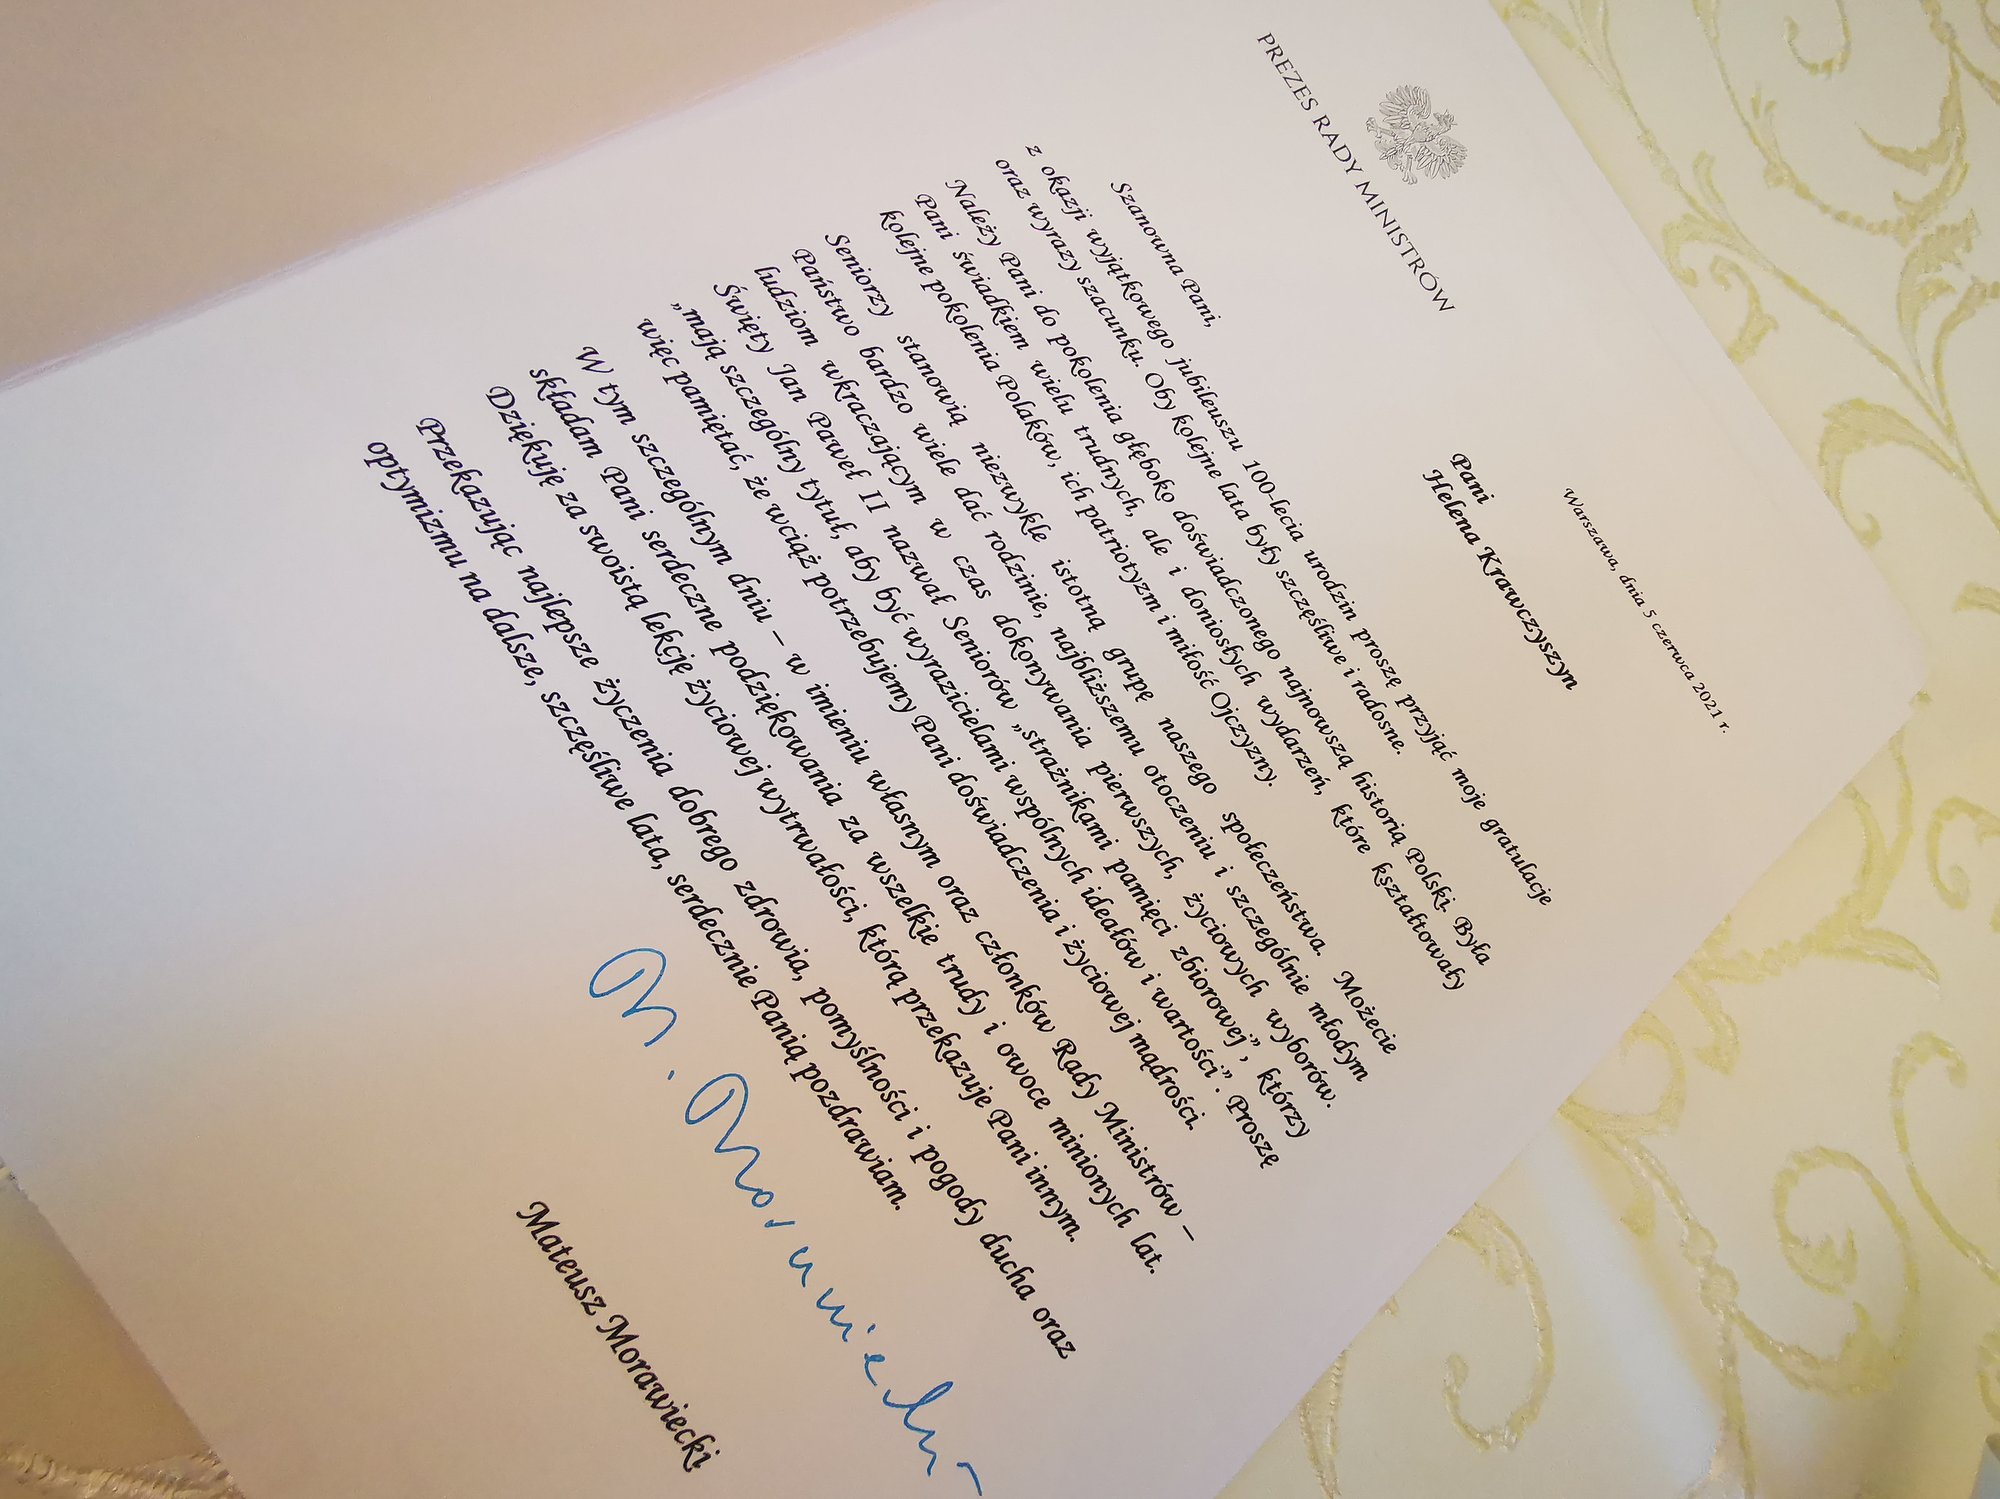 PREZES RADY MINISTRÓW
Warszawa, dnia 5 czerwca 2021 r.
Pani
Helena Krawczyszyn
Szanowna Pani,
z okazji wyjątkowego jubileuszu 100-lecia urodzin proszę przyjąć moje gratulacje
oraz wyrazy szacunku. Oby kolejne lata były szczęśliwe i radosne.
Należy Pani do pokolenia głęboko doświadczonego najnowszą historią Polski. Była
Pani świadkiem wielu trudnych, ale i doniosłych wydarzeń, które kształtowały
kolejne pokolenia Polaków, ich patriotyzm i miłość Ojczyzny.
Seniorzy stanowią niezwykle istotną grupę naszego społeczeństwa. Możecie
Państwo bardzo wiele dać rodzinie, najbliższemu otoczeniu i szczególnie młodym
ludziom wkraczającym w czas dokonywania pierwszych, życiowych wyborów.
Święty Jan Paweł II nazwał Seniorów „strażnikami pamięci zbiorowej”, którzy
„mają szczególny tytuł, aby być wyrazicielami wspólnych ideałów i wartości”. Proszę
więc pamiętać, że wciąż potrzebujemy Pani doświadczenia i życiowej mądrości.
W tym szczególnym dniu – w imieniu własnym oraz członków Rady Ministrów –
składam Pani serdeczne podziękowania za wszelkie trudy i owoce minionych lat.
Dziękuję za swoistą lekcję życiowej wytrwałości, którą przekazuje Pani innym.
Przekazując najlepsze życzenia dobrego zdrowia, pomyślności i pogody ducha oraz
optymizmu na dalsze, szczęśliwe lata, serdecznie Panią pozdrawiam.
M. Morawiecki
Mateusz Morawiecki